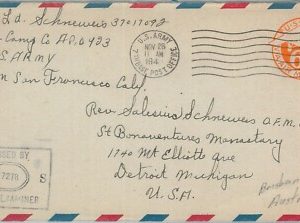 L.A. Schneweis 37017092
Camp Co APO 923
U.S. ARMY
San Francisco Caly.
U.S. ARMY
NOV 26
11 AM
194
POSTAL OFFICE
U.S.
6
Rev Salesius Schneweis O.F.M.
St Bonaventures Monastary
1740 Mt Elliott Ave
Detroit Michigan
U.S.A.
SSED BY
S
EXAMINER
Brisbane
Austra